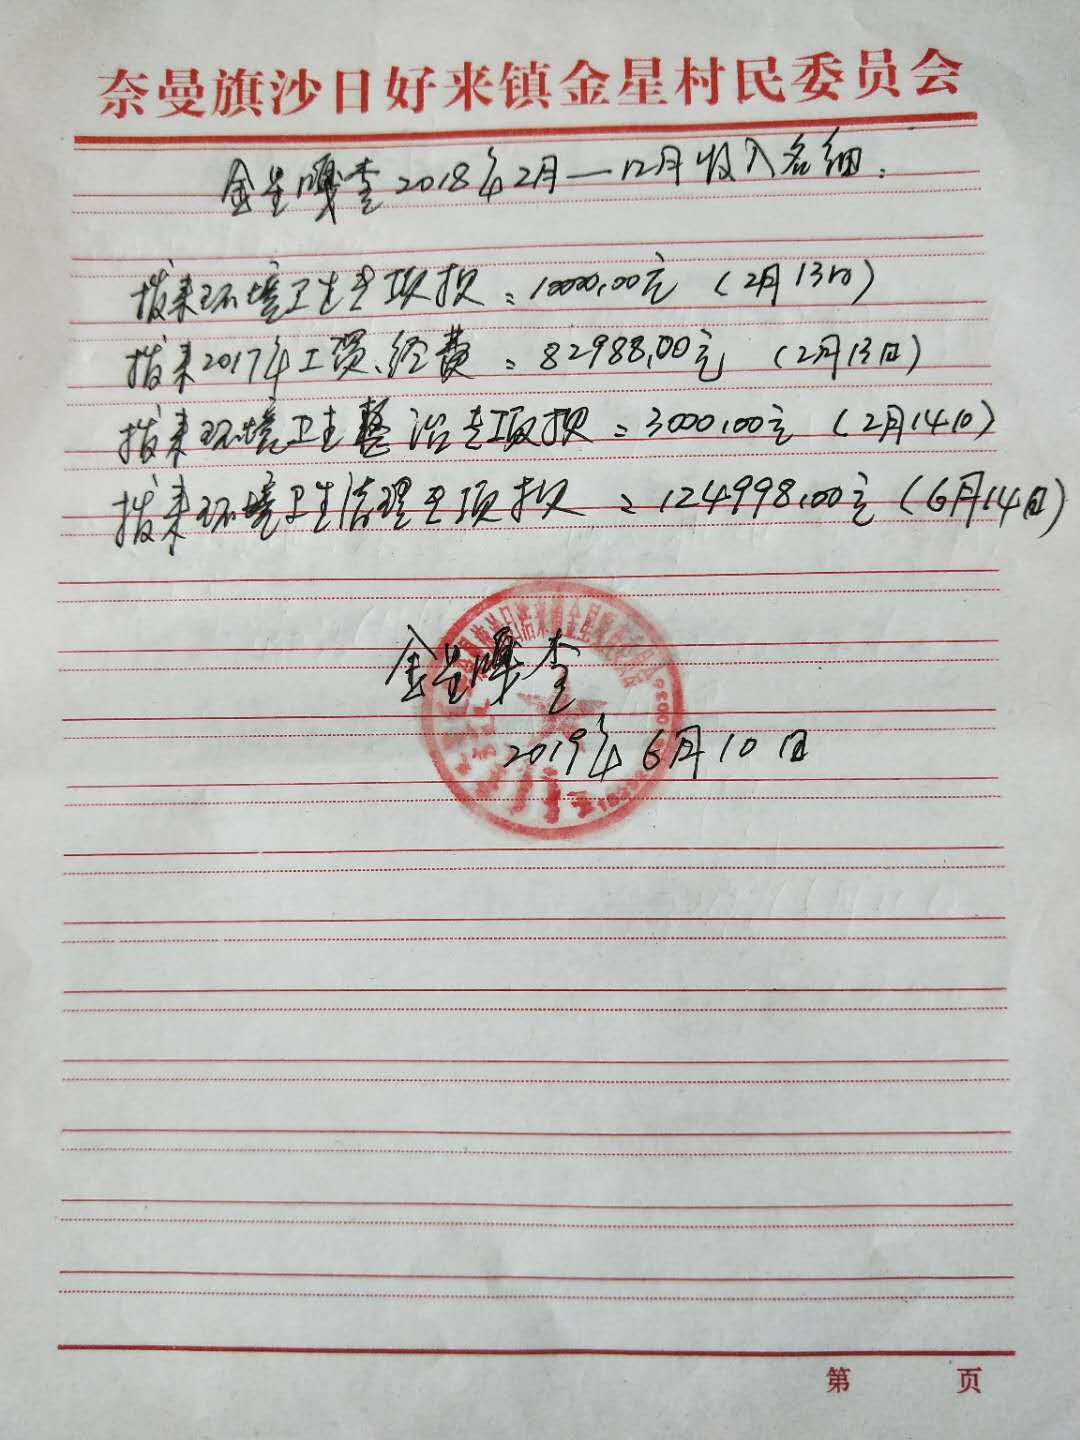 奈曼旗沙日好来镇金星村民委员会
金星嘎查2018年2月—12月收入名细:
拨来环境卫生专项款:10000.00元(2月13日)
拨来2017年工资、经费:82988.00元(2月13日)
拨来环境卫生整治专项款:3000.00元(2月14日)
拨来环境卫生清理专项款:124998.00元(6月14日)
金星嘎查
2019年6月10日
第 页